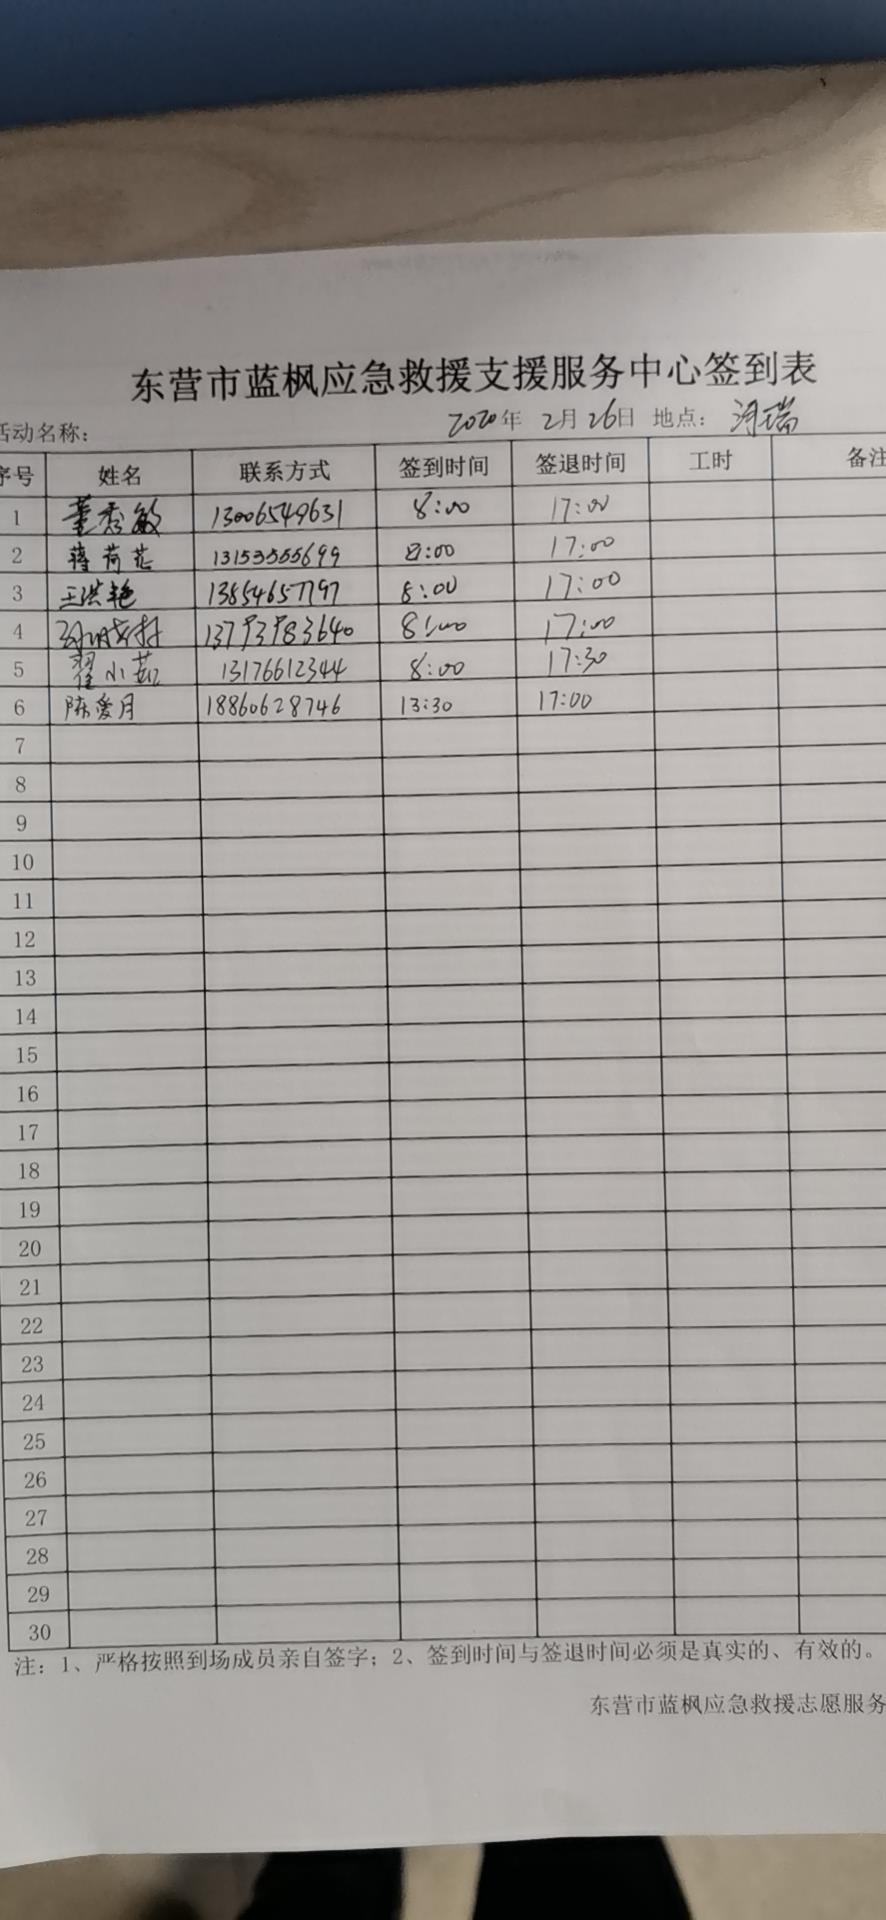 东营市蓝枫应急救援支援服务中心签到表
活动名称： 2020年 2月26日 地点：
序号 姓名 联系方式 签到时间 签退时间 工时 备注
1 董秀敏 13006549631 8:00 17:00
2 蒋荷芷 13153555699 8:00 17:00
3 王洪艳 13854657797 8:00 17:00
4 13793983640 8:00 17:00
5 翟小茹 13176612344 8:00 17:30
6 陈爱月 18860628746 13:30 17:00
7
8
9
10
11
12
13
14
15
16
17
18
19
20
21
22
23
24
25
26
27
28
29
30
注：1、严格按照到场成员亲自签字；2、签到时间与签退时间必须是真实的、有效的。
东营市蓝枫应急救援志愿服务